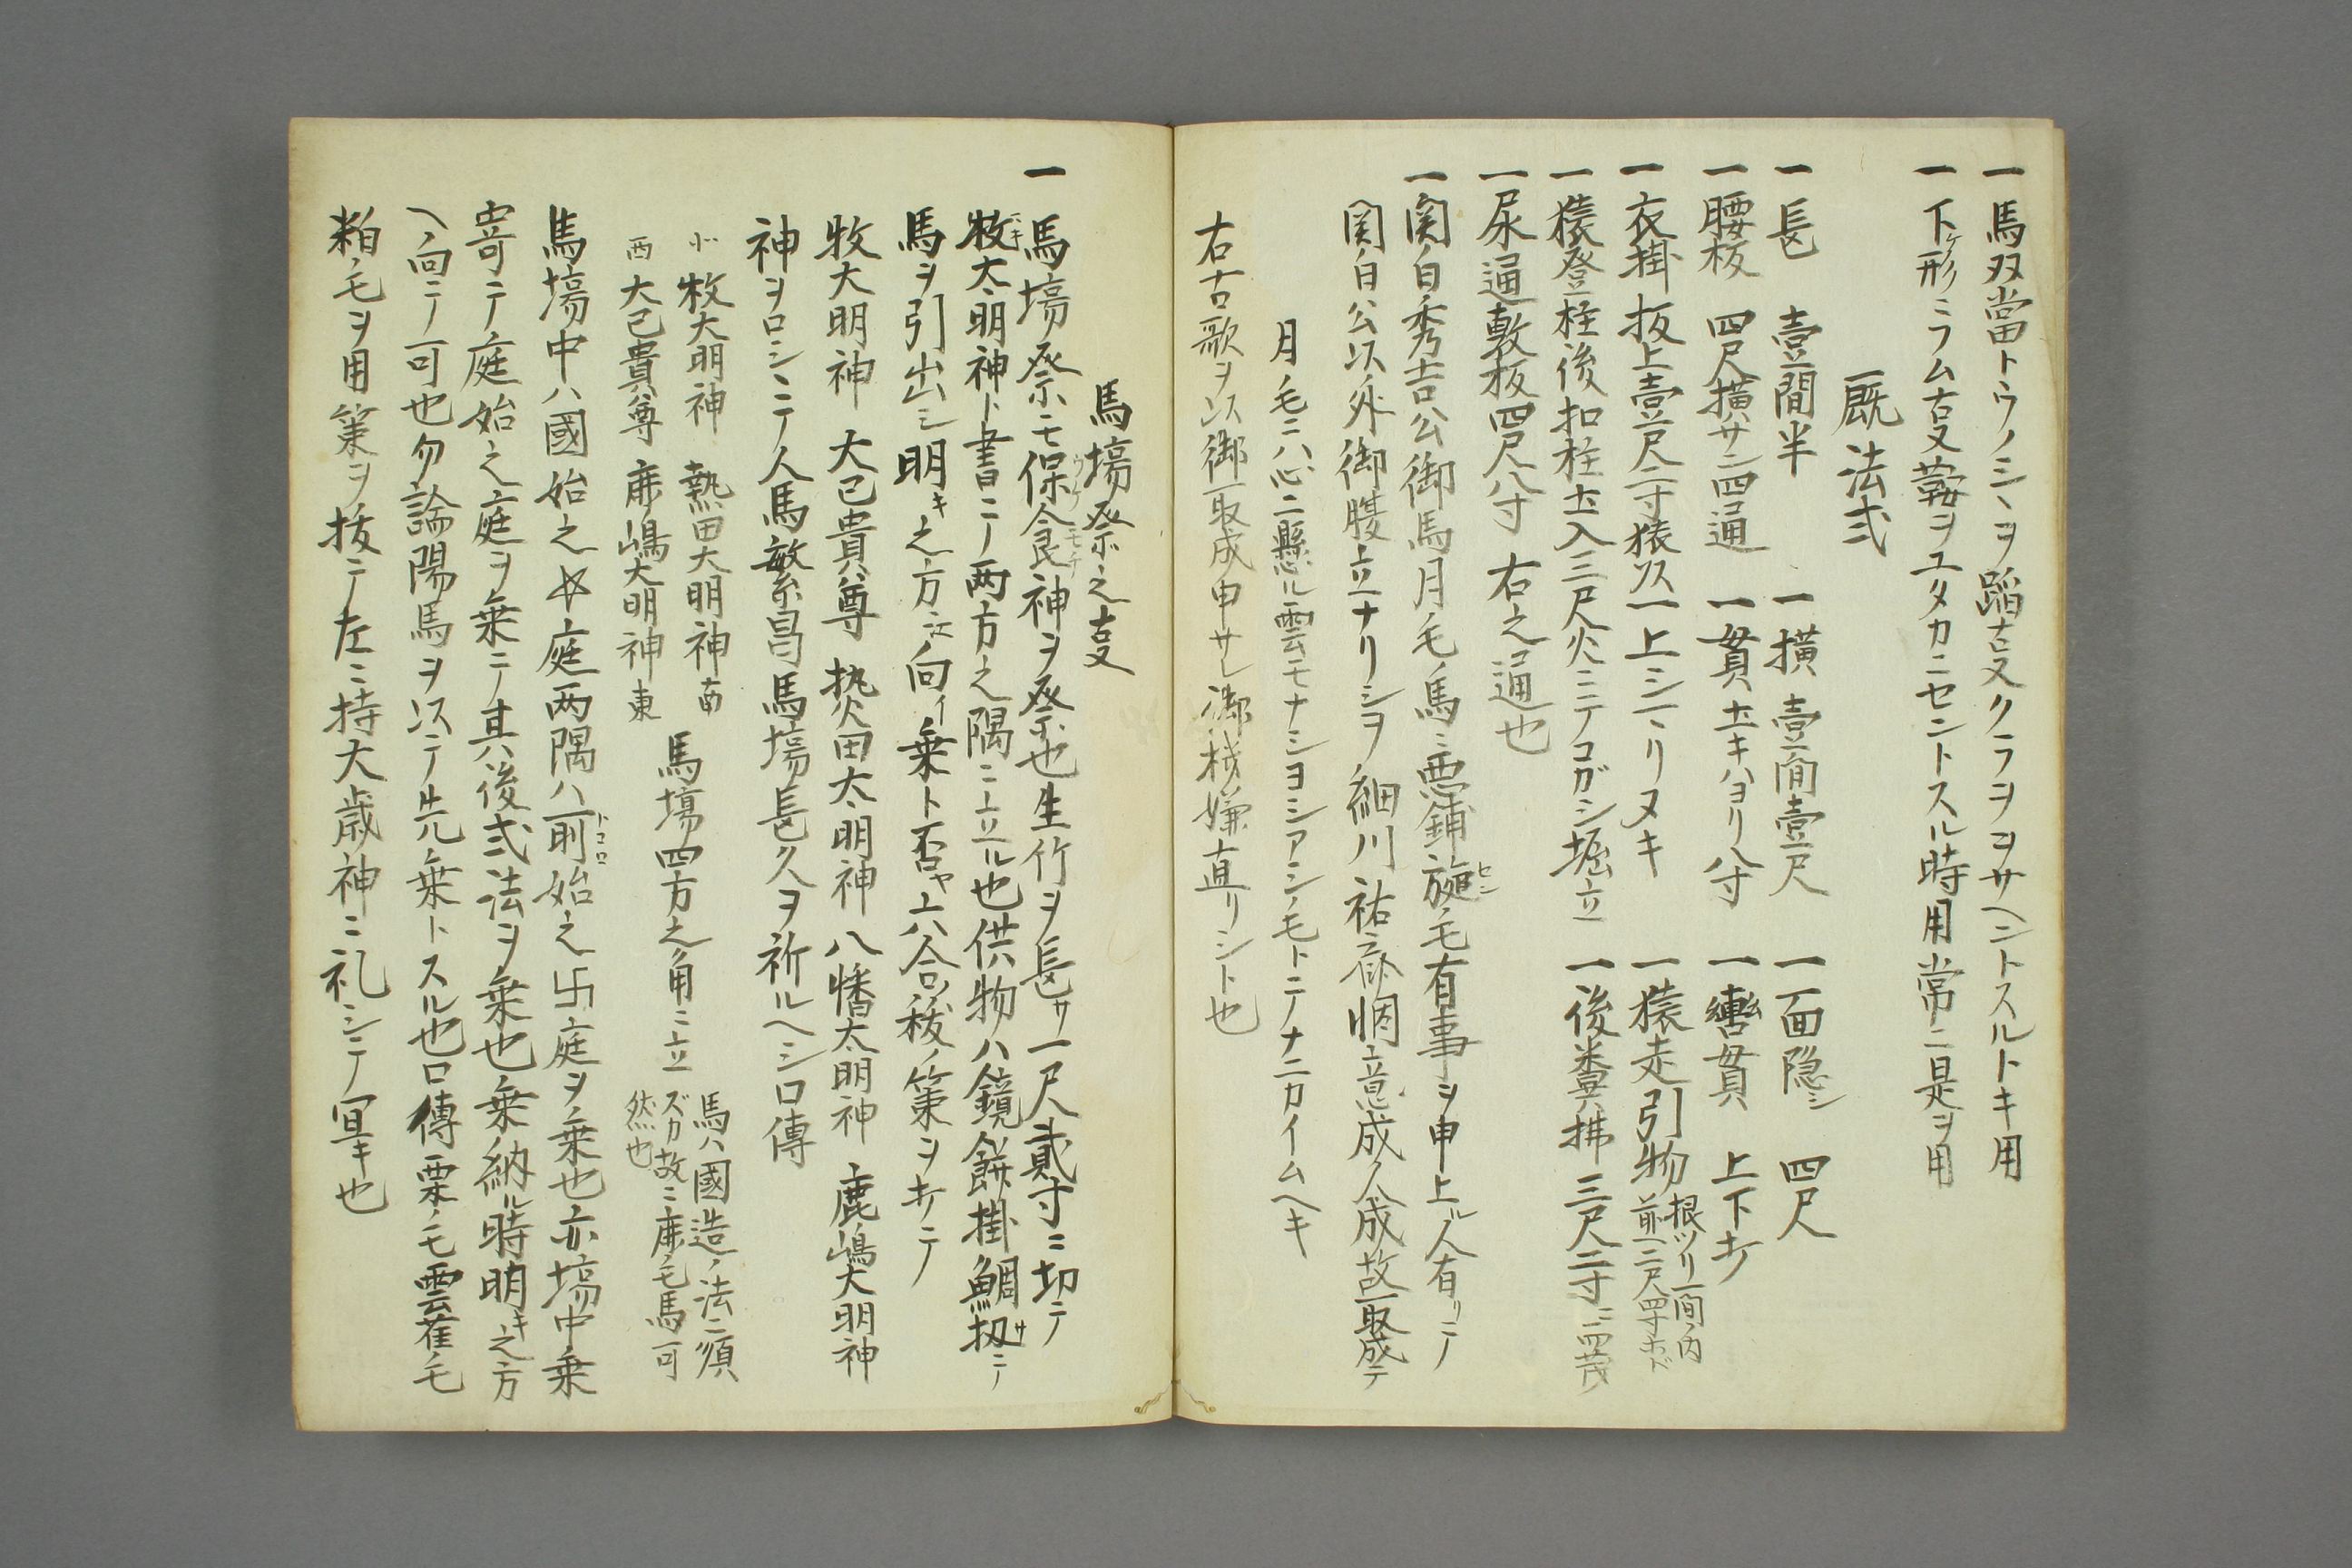 一馬双當トウノミヽヲ蹈㕝クラヲヲサヘントスルトキ用
一下形ミラム㕝鞍ヲユタカニセントスル時用常ニ是ヲ用
厩法弐
一長　壹間半　一横　壹間壹尺　一面隠シ　四尺
一腰板　四尺横サン四通　一貫土キハヨリ八寸　一轡貫　上下ナ
一衣掛　板上壹尺二寸猿以一上シヽリヌキ　一猿走引物　根ツリ一間ノ内　前二尺四寸ホド
一猿登柱後扣柱土入三尺火ニテコガシ堀立　一後糞拂　三尺二寸ニ四茂
一尿通敷板四尺八寸　右之通也
一関白秀吉公御馬月毛ノ馬ニ悪鋪旋毛有事ヲ申上ル人有リテ
関白公以外御腹立ナリシヲ細川祐斎悃意成人成故取成テ
月毛ニハ心ニ懸ル雲モナシヨシアシノモトニテナニカイムヘキ
右古歌ヲ以御取成申サレ御機嫌直リシト也
馬塲祭之㕝
一馬塲祭ニモ保食神ヲ祭也生竹ヲ長サ一尺貳寸ニ切テ
牧大明神ト書テ両方之隅ニ立ル也供物ハ鏡餅掛鯛扨サテ
馬ヲ引出シ明キ之方江向イ乗ト否ヤ六合祓ノ策ヲナテ
牧大明神　大己貴尊　熱田大明神　八幡大明神　鹿嶋大明神
神ヲロシニテ人馬繁昌馬塲長久ヲ祈ルヘシ口傳
北　牧大明神　熱田大明神　南
西　大己貴尊　鹿嶋大明神　東
馬塲四方之角ニ立
馬ハ國造ノ法ニ須
ズカ故ニ鹿毛馬可
然也
馬塲中ハ國始之庭両隅ハ前始之卐庭ヲ乗也亦塲中乗
寄テ庭始之庭ヲ乗テ其後弐法ヲ乗也乗納ル時明キ之方
ヘ向テ可也勿論陽馬ヲ以テ先乗トスル也口傳栗毛雲雀毛
粕毛ヲ用策ヲ抜テ左ニ持大歳神ニ礼シテ冝キ也